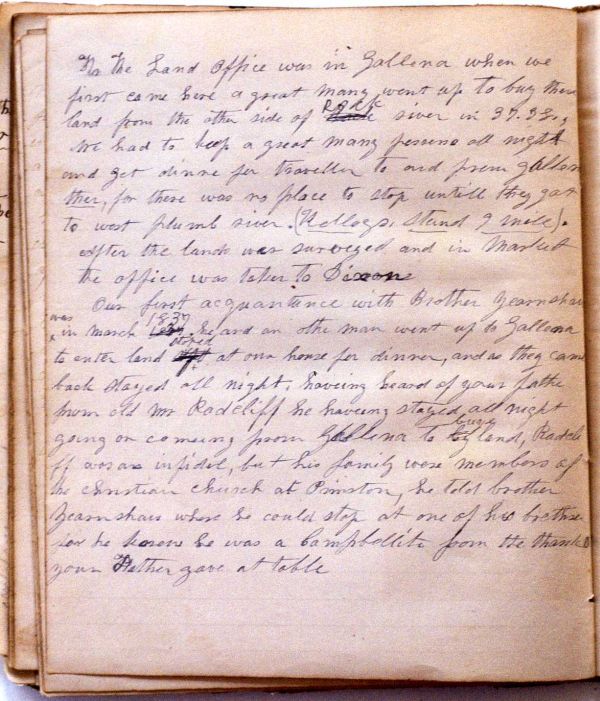 The Land Office was in Gallena when we
first came here a great many went up to buy there
land from the other side of Rock river in 37.38,
We had to keep a great many persons all night
and get dinne for traveller to and from gallan
ther, for there was no place to stop untill they got
to west plumb river. (Kellogs, stand 9 mile).
After the lands was surveyed and in Market
the office was taken to Dixon
Our first acquantance with Brother Yearnshaw
was in March 1837 he and an othe man went up to Gallena
to enter land stoped at our house for dinner, and as they came
back stayed all night, haveing heard of your fathe
from old Mr Radcliff he haveing stayed all night
going or comeing from Gallena to buy land, Radcli
ff was an infidel, but his family were members of
the christian church at Prinston, he told brother
Yearnshaw where he could stop at one of his brethren
for he knew he was a Campbellite from the thanks
your Father gave at table